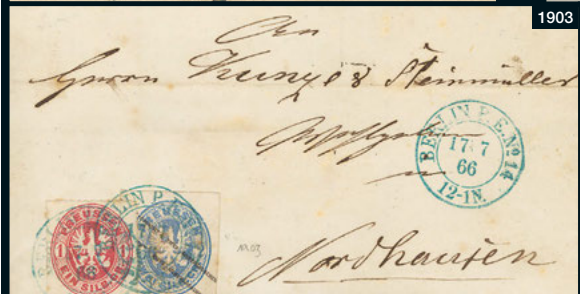 1903
Den
Herrn Kunze & Steinmüller
BERLIN P.E. No 14
17 7
66
12-1N.
1903
Nordhausen
PREUSSEN
1
EIN SILB. GR.